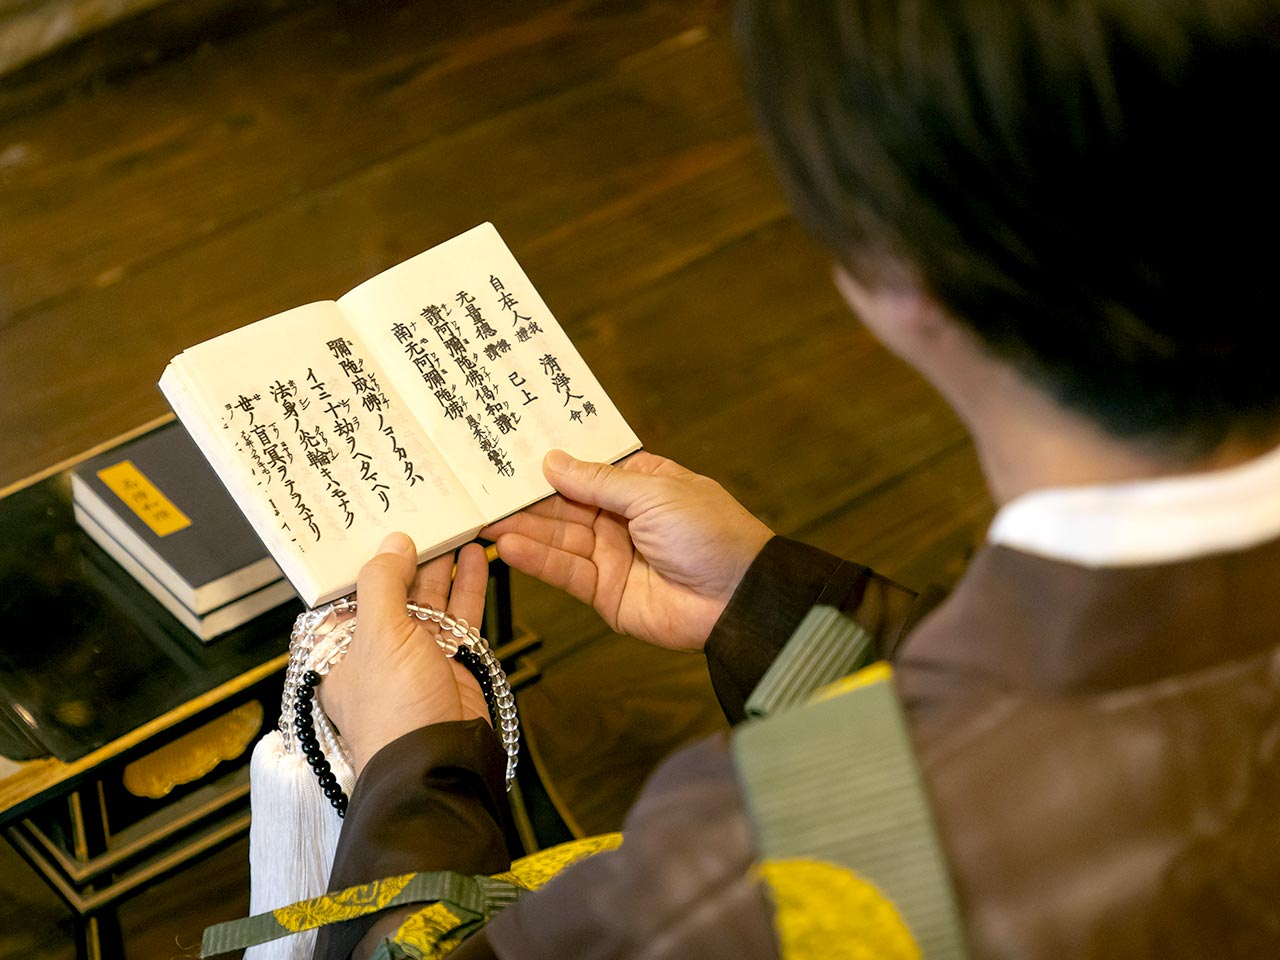 自在人 我禮 清淨人 歸命
无量德 稱讚 已上
讚阿彌陀佛偈和讚
南无阿彌陀佛 愚禿親鸞作
彌陀成佛ノコノカタハ
イマニ十劫ヲヘタマヘリ
法身ノ光輪キハモナク
世ノ盲冥ヲテラスナリ